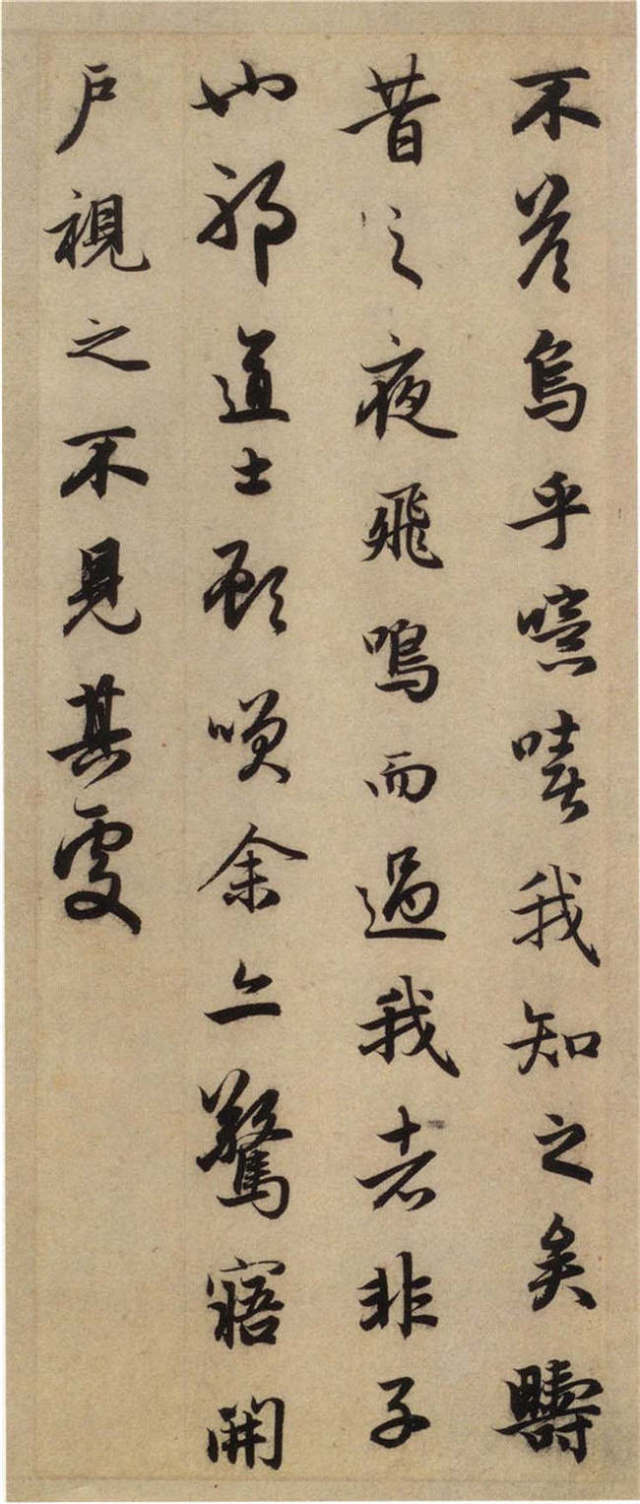 不荅烏乎噫嘻我知之矣疇
昔之夜飛鳴而過我者非子
也邪道士顧嘆余亦驚寤開
戶視之不見其處